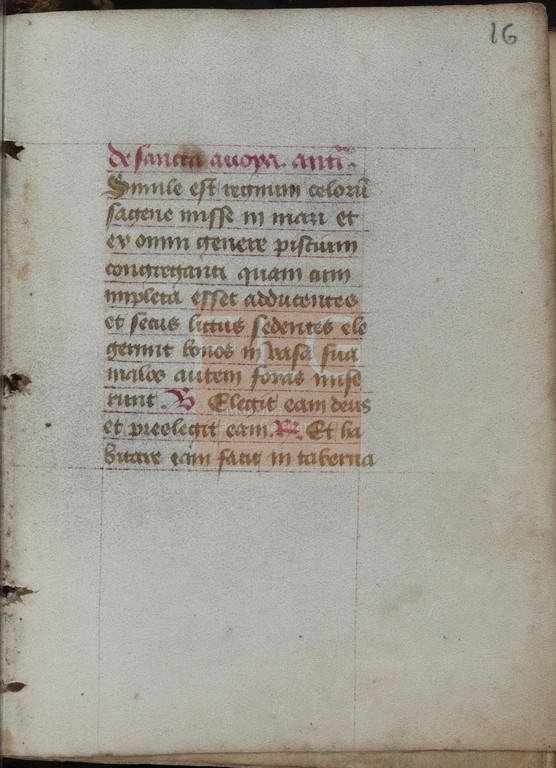 16
de sancta auoya. antiᵃ.
Simile est regnum celorū
sagene misse in mari et
ex omni genere piscium
congreganti quam cum
impleta esset adducentes
et secus littus sedentes ele
gerunt bonos in vasa sua
malos autem foras mise
runt. V Elegit eam deus
et preelegit eam. R Et ha
bitare eam facit in taberna